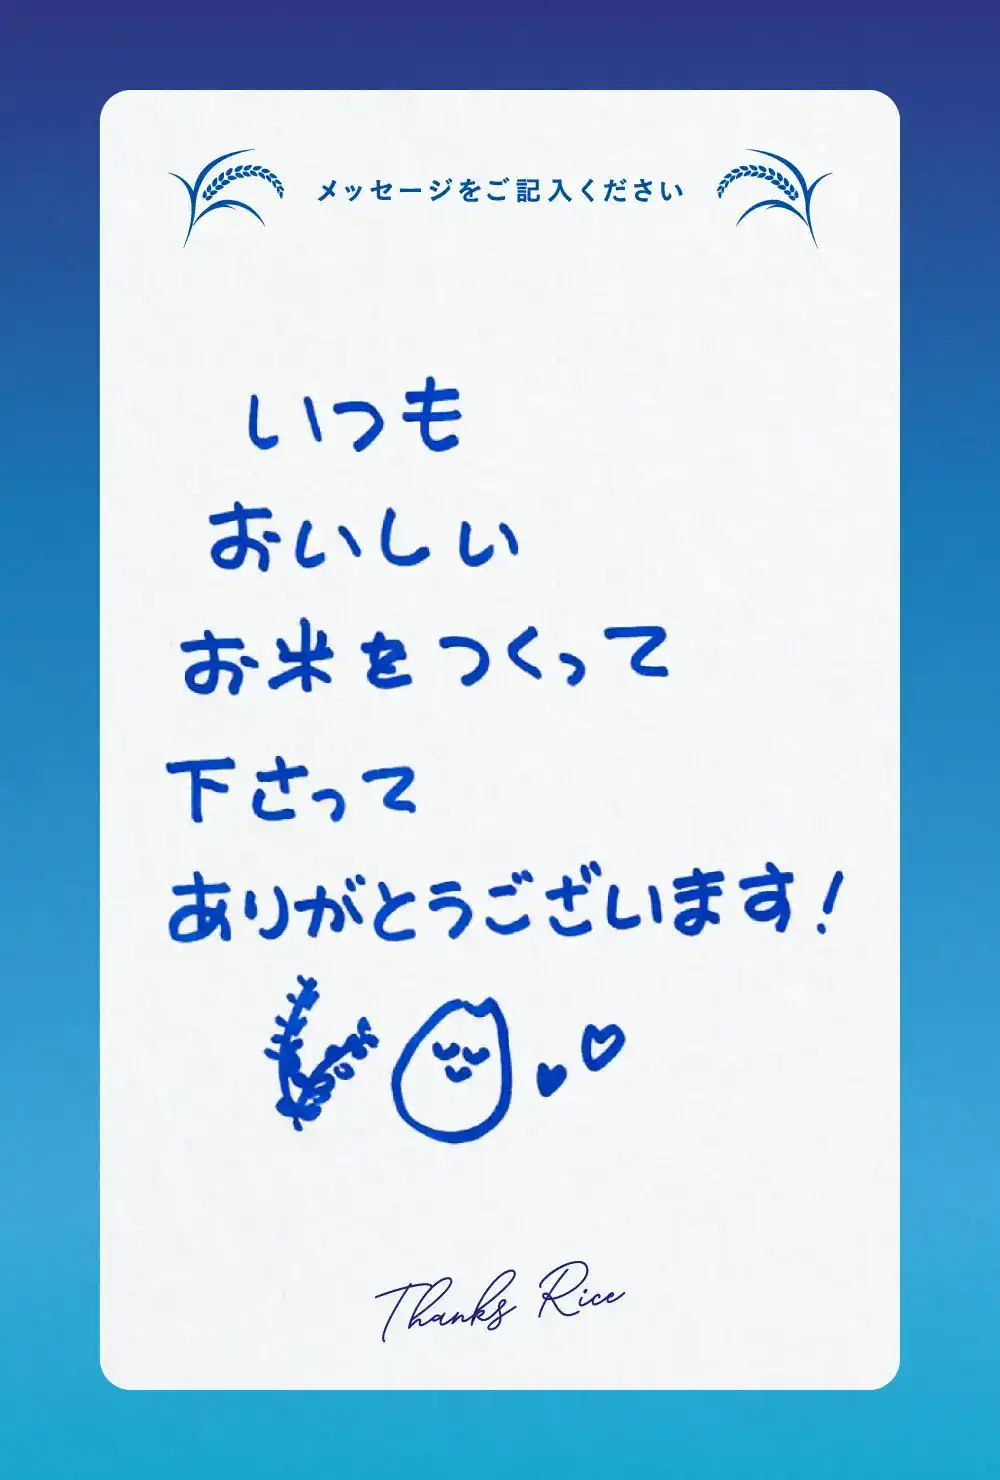 メッセージをご記入ください
いつも
おいしい
お米をつくって
下さって
ありがとうございます！
Thanks Rice